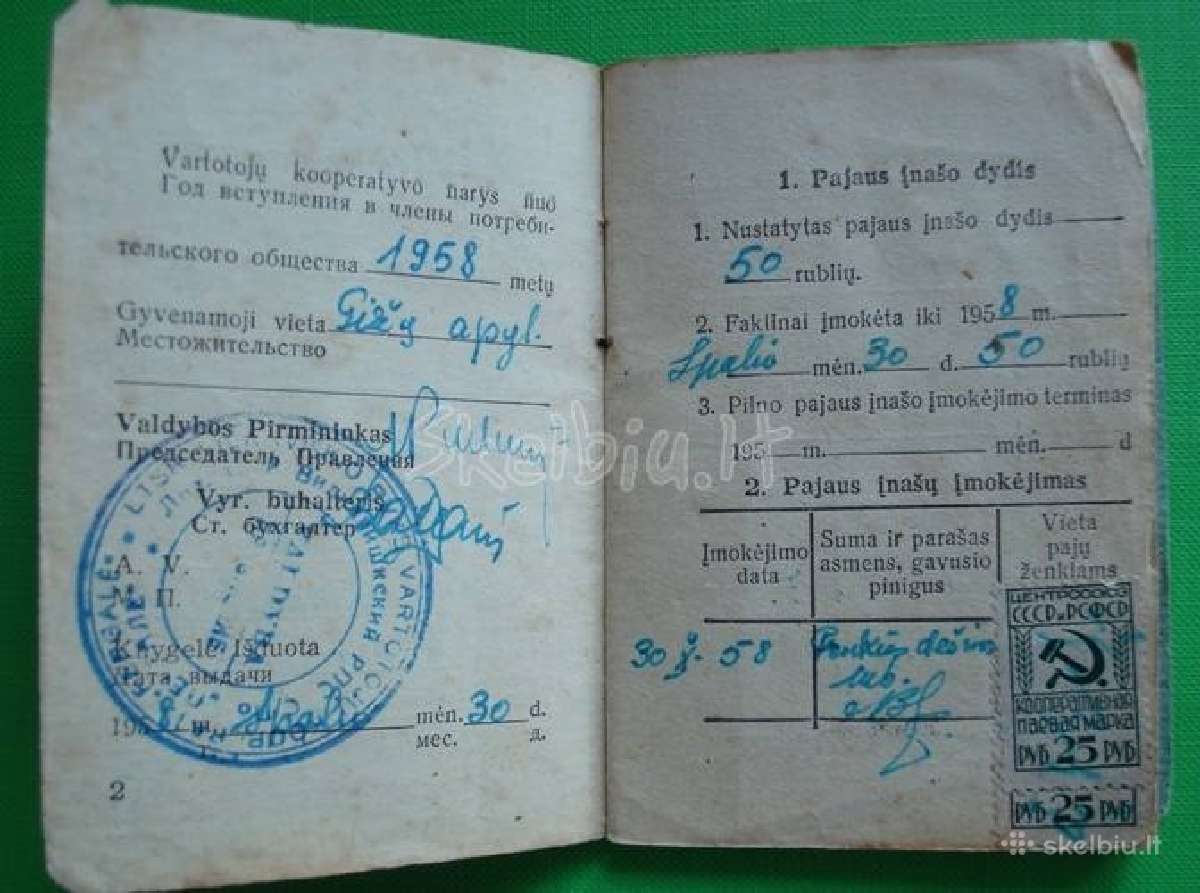 Vartotojų kooperatyvo narys nuo
Год вступления в члены потреби-
тельского общества 1958 metų
Gyvenamoji vieta Gižų apyl.
Местожительство
Valdybos Pirmininkas
Председатель Правления
Vyr. buhalteris
Ст. бухгалтер
A. V.
М. П.
Knygelė išduota
Дата выдачи
1958 m. Spalio mėn. 30 d.
г. мес. д.
2
1. Pajaus įnašo dydis
1. Nustatytas pajaus įnašo dydis
50 rublių.
2. Faktinai įmokėta iki 1958 m.
Spalio mėn. 30 d. 50 rublių
3. Pilno pajaus įnašo įmokėjimo terminas
195 m. mėn. d
2. Pajaus įnašų įmokėjimas
Įmokėjimo data
Suma ir parašas asmens, gavusio pinigus
Vieta pajų ženklams
30 X. 58
Penkias dešimt
rub.
ЦЕНТРОСОЮЗ
СССР и РСФСР
КООПЕРАТИВНАЯ
ПАЕВАЯ МАРКА
РУБ 25 РУБ
РУБ 25 РУБ
Skelbiu.lt
skelbiu.lt